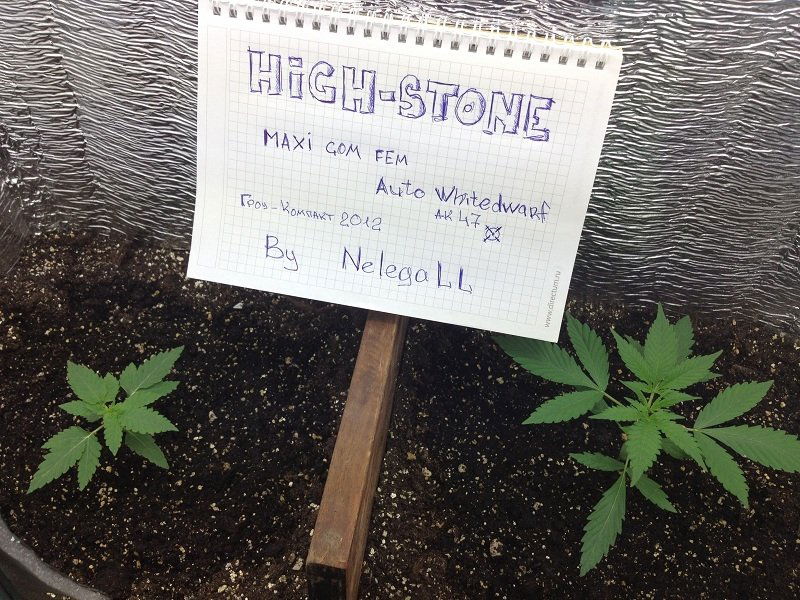 HiGH-STONE
MAXi GOM FEM
Auto Whitedwarf
АК 47
Гроу-Компакт 2012
By NelegaLL
www.directum.ru